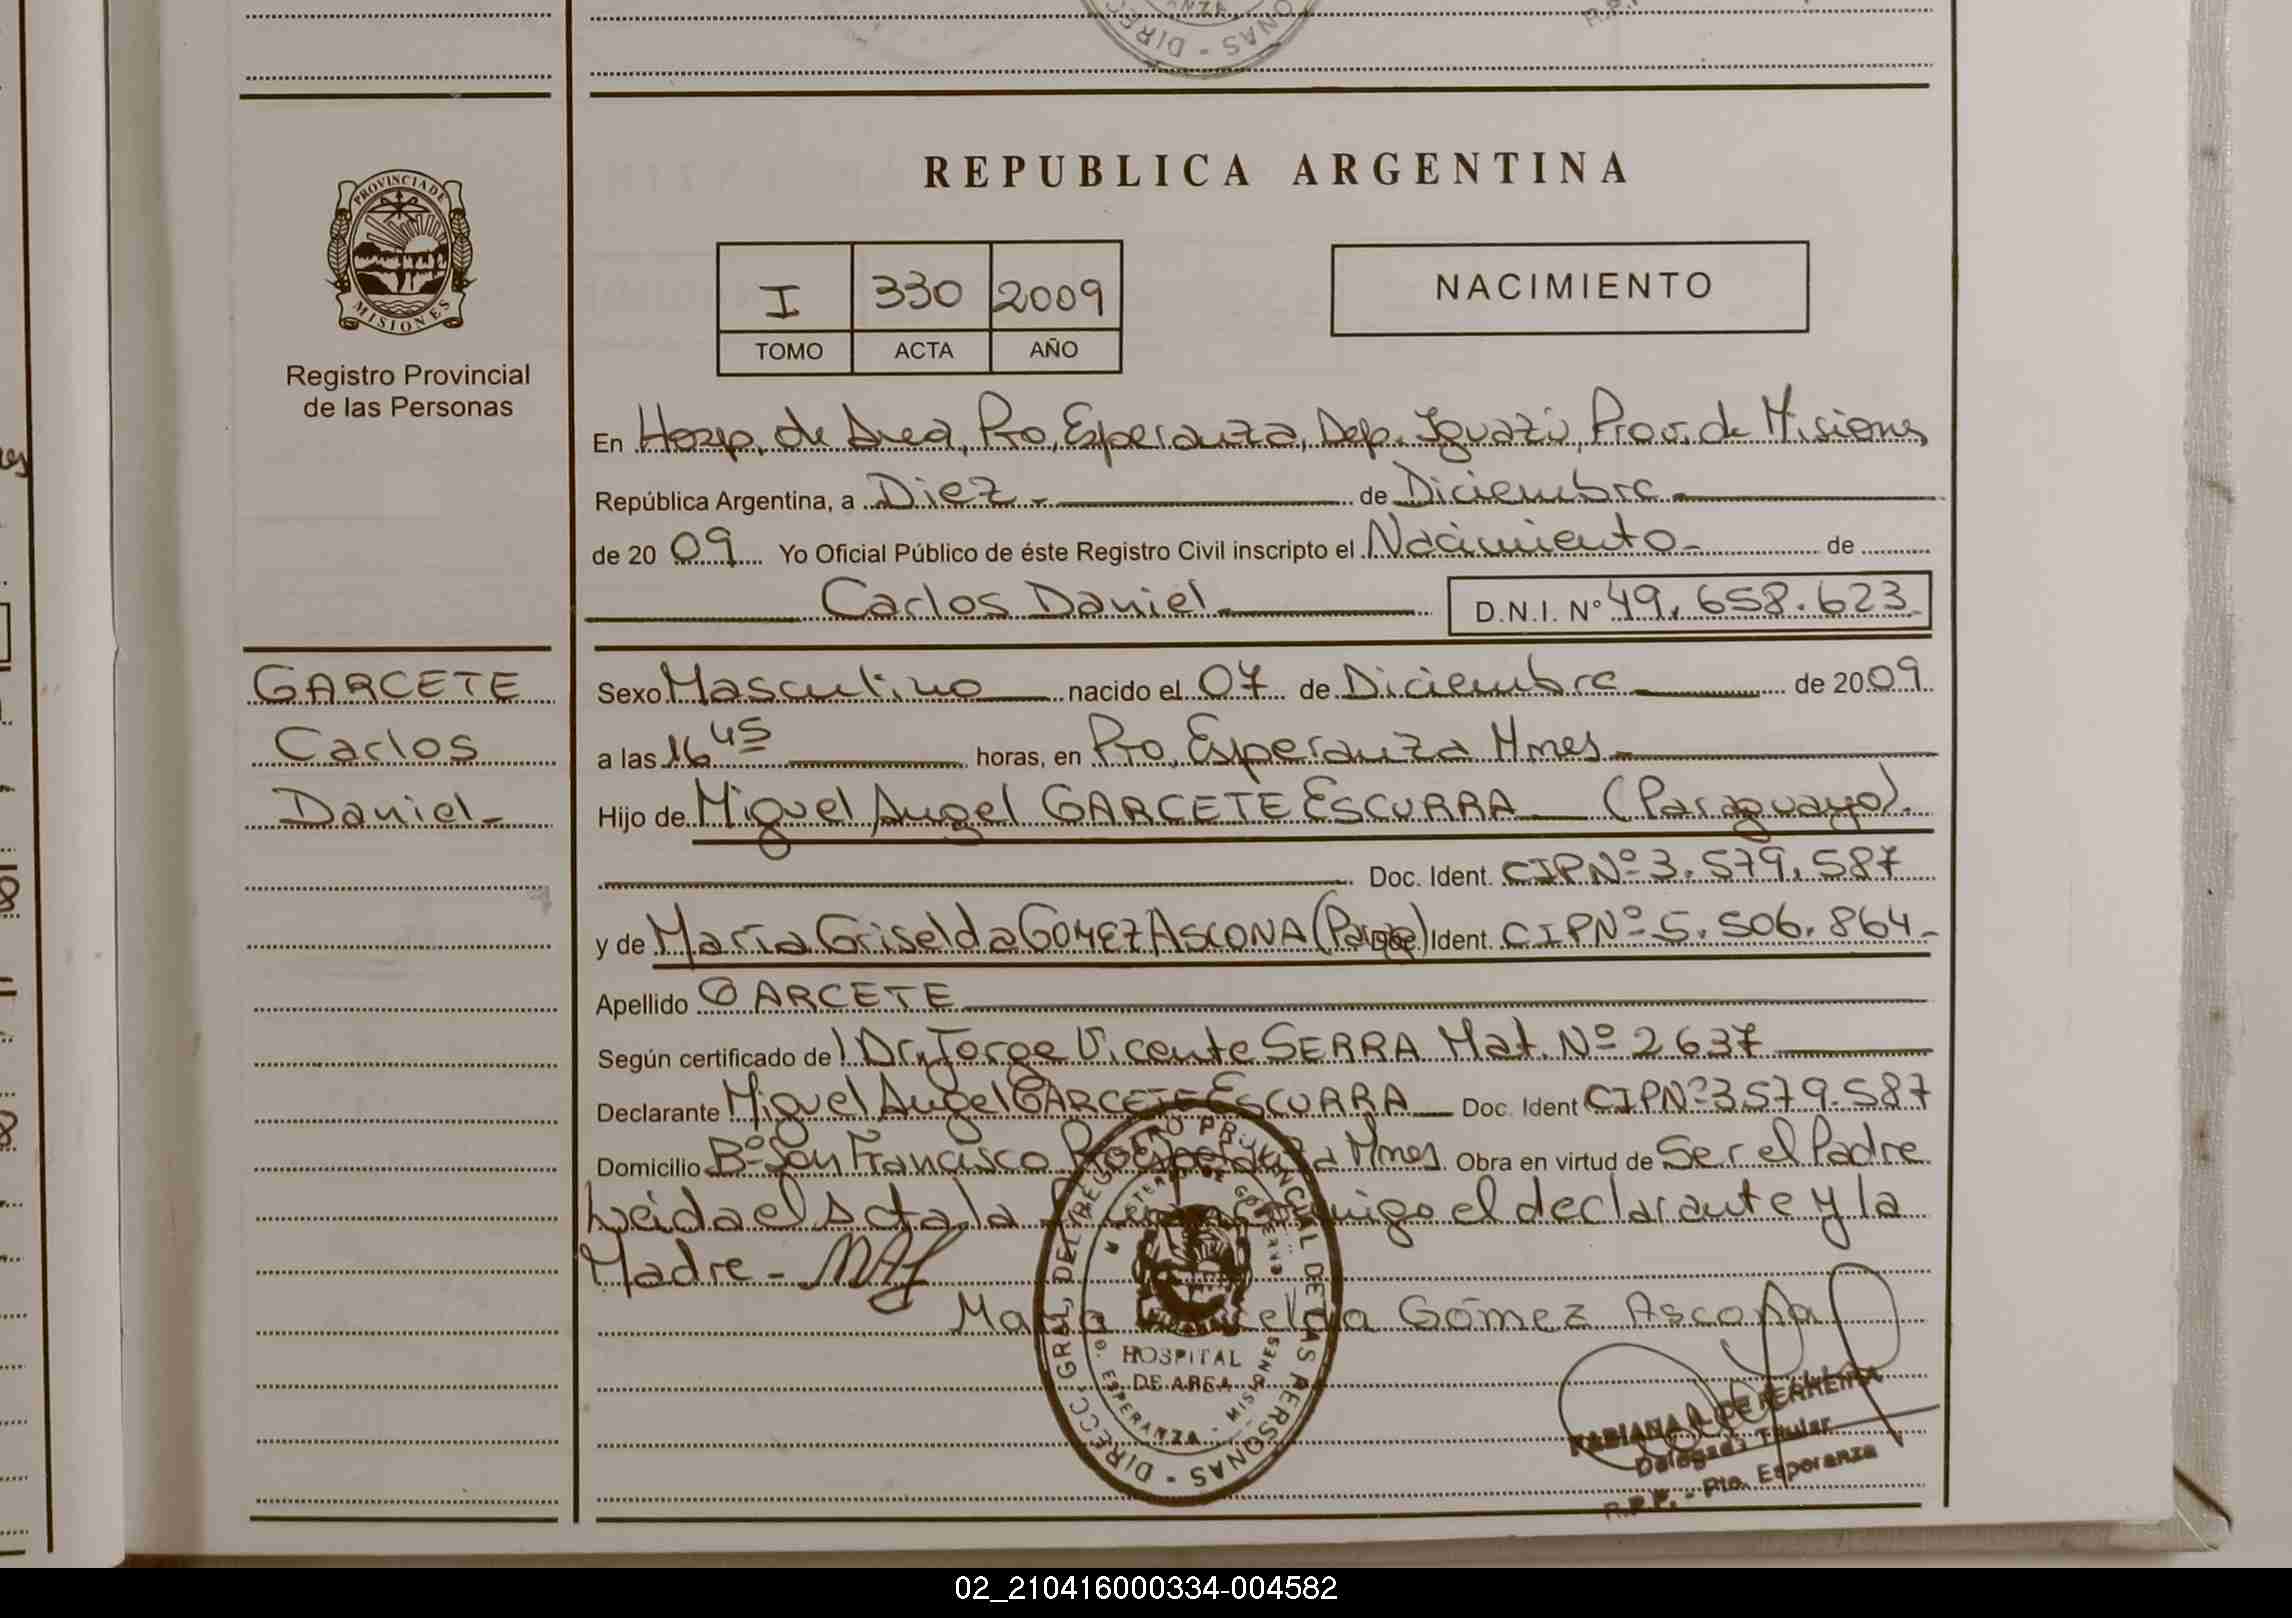 REPUBLICA ARGENTINA
PROVINCIA DE
MISIONES
Registro Provincial
de las Personas
I 330 2009
TOMO ACTA AÑO
NACIMIENTO
En Hosp. de Area, Pto. Esperanza, Dep. Iguazú, Prov. de Misiones
República Argentina, a Diez.- de Diciembre.-
de 20 09 Yo Oficial Público de éste Registro Civil inscripto el Nacimiento- de
Carlos Daniel D.N.I. Nº 49.658.623
GARCETE
Carlos
Daniel-
Sexo Masculino nacido el 07 de Diciembre de 20 09
a las 16 45 horas, en Pto. Esperanza Mnes.-
Hijo de Miguel Angel GARCETE ESCURRA (Paraguayo).
Doc. Ident. CIP Nº 3.579.587
y de María Griselda GOMEZ ASCONA Ident. CIP Nº 5.506.864-
Apellido GARCETE
Según certificado de Dr. Jorge Vicente SERRA Mat. Nº 2637
Declarante Miguel Angel GARCETE ESCURRA Doc. Ident CIP Nº 3579.587
Domicilio Bº San Francisco Mnes. Obra en virtud de Ser el Padre
Leída el Acta, la el declarante y la
Madre -
Gómez Ascona
DIRECC. GRAL. DEL REGISTRO PROVINCIAL DE LAS PERSONAS
HOSPITAL
DE AREA
ESPERANZA - MISIONES
FABIANA DE FERREIRA
Delegada Titular
R.P.P. - Pto. Esperanza
02_210416000334-004582